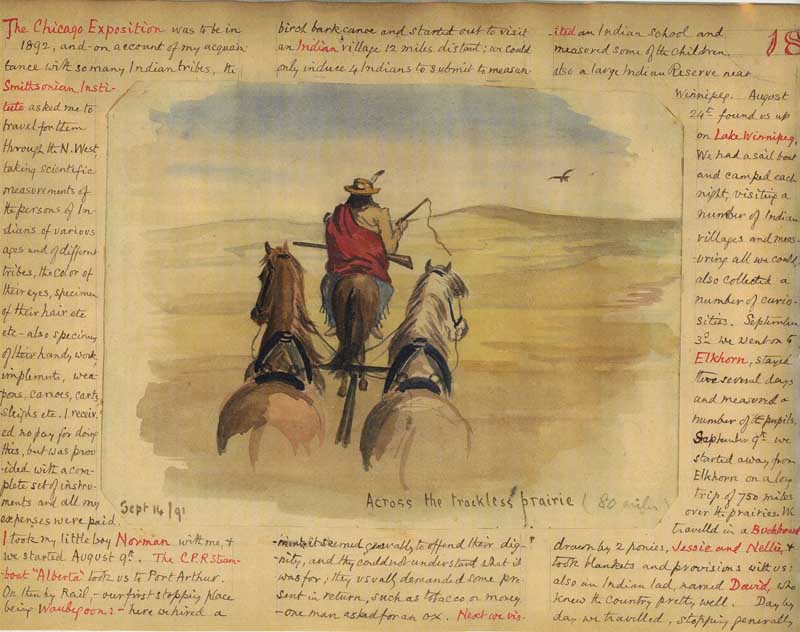 The Chicago Exposition was to be in
1892, and on account of my acquain
tance with so many Indian tribes, the
Smithsonian Insti-
tute asked me to
travel for them
through the N. West,
taking scientific
measurements of
the persons of In-
dians of various
ages and of different
tribes, the color of
their eyes, specimen
of their hair etc
etc - also specimens
of their handy work,
implements, wea-
pons, canoes, carts,
sleighs etc. I receiv-
ed no pay for doing
this, but was prov-
ided with a com-
plete set of instru-
ments and all my
expenses were paid.
I took my little boy Norman with me, &
we started August 9th. The C.P.R Steam-
boat "Alberta" took us to Port Arthur.
On then by Rail, - our first stopping place
being Waubegoon: - here we hired a
birch bark canoe and started out to visit
an Indian village 12 miles distant; we could
only induce 4 Indians to submit to measure-
Sept 14/91
Across the trackless prairie (80 miles)
-ments, it seemed generally to offend their dig-
nity, and they could not understand what it
was for; they usually demanded some pre
sent in return, such as tobacco or money
- one man asked for an ox. Next we vis-
ited an Indian school and
measured some of the children.
also a large Indian Reserve near
18
Winnipeg. August
24th found us up
on Lake Winnipeg.
We had a sail boat
and camped each
night, visiting a
number of Indian
villages and meas-
uring all we could,
also collected a
number of curio-
sities. September
3d we went on to
Elkhorn, stayed
there several days
and measured a
number of the pupils.
September 9th we
started away from
Elkhorn on a long
trip of 750 miles
over the prairies. We
travelled in a Buckboard
drawn by 2 ponies, Jessie and Nellie, &
took blankets and provisions with us:
also an Indian lad, named David, who
knew the country pretty well. Day by
day we travelled, stopping generally